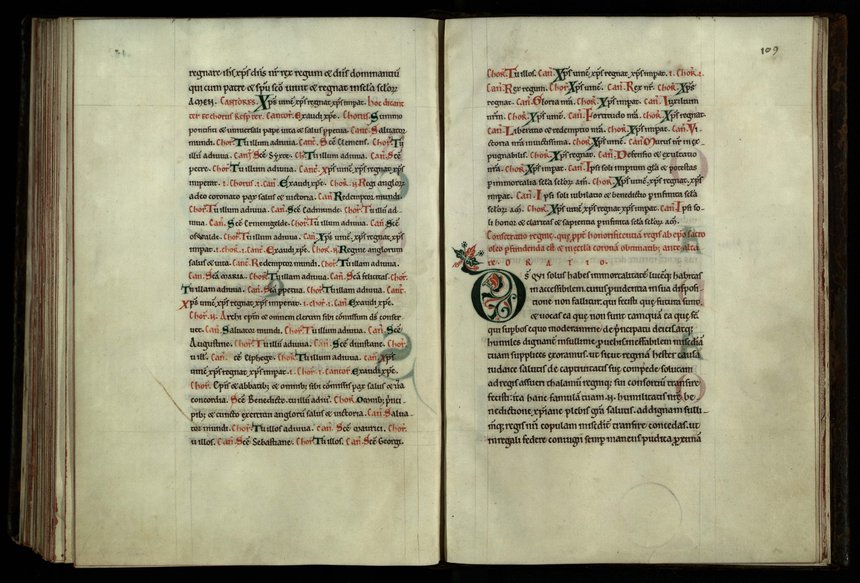 regnare. ihs xps dns nr rex regum et dns dominantiu
qui cum patre et spu sco vivit et regnat in scla sclor
AMEN. CANTORES. Xps vinc. xps regnat. xps impat. hoc dicant
ter et chorus resp ter. Cantor. Exaudi xpe. Chorus. Summo
pontifici et universali pape vita et salus ppetua. Cant. Salvator
mundi. Chor. Tu illum adiuva. Can. Sce Clemens. Chor. Tu
illu adiuva. Can. Sce Syxte. Ch. Tu illum adiuva. Can. Sce
petre. Chor. Tu illum adiuva. Cant. Xps vinc. xps regnat. xps
imperat. i. Chorus. i. Can. Exaudi xpe. Chor. Regi anglor
a deo coronato pax salus et victoria. Can. Redemptor mundi.
Chor. Tu illum adiuva. Can. Sce eadmunde. Chor. Tu illu ad
iuva. Can. Sce Ermengelde. Chor. Tu illum adiuva. Can. Sce
oswalde. Chor. Tu illum adiuva. Can. Xps vinc. xps regnat. xps
impat. i. chor. i. Can. Exaudi xpe. Chor. Regine anglorum
salus et vita. Can. Redemptor mundi. Chor. Tu illum adiuva.
Can. Sca maria. Chor. Tu illam adiuva. Can. Sca felicitas. Chor.
Tu illam adiuva. Can. Sca ppetua. Chor. Tu illam adiuva. Can.
Xps vinc. xps regnat. xps imperat. i. chor. i. Can. Exaudi xpe.
Chor. Archi epm et omnem clerum sibi comissum ds conser
vet. Can. Salvator mundi. Chor. Tu illum adiuva. Can. Sce
Augustine. Chor. Tu illu adiuva. Can. Sce dunstane. Chor.
u ill. Can. ce elphege. Chor. Tu illum adiuva. Can. Xps
vinc. xps regnat. xps impat. i. Chor. i. cantor. Exaudi xpe.
Chor. Epis et abbatib; et omnib; sibi comissis pax salus et ua
concordia. Sce Benedicte. tu illu adiu. Chor. Omnib; pnci
pib; et cuncto exercitui angloru salus et victoria. Can. Salva
tor mundi. Chor. Tu illos adiuva. Can. Sce maurici. Chor.
u illos. Can. Sce Sebastiane. Chor. Tu illos. Can. Sce Georgi.
109
Chor. Tu illos. Can. Xps vinc. xps regnat. xps impat. i. Chor. i.
Can. Rex regum. Chor. Xps vinc. Can. Rex nr. Chor. Xps
regnat. Can. Gloria nra. Chor. Xps impat. Can. Auxilium
nrm. Chor. Xps vinc. Can. Fortitudo nra. chor. Xps regnat.
Can. Liberatio et redemptio nra. Chor. Xps impat. Can. Vi
ctoria nra invictissima. chor. Xps vinc. Can. Murus nr inex
pugnabilis. Chor. Xps regnat. Can. Defensio et exultatio
nra. Chor. Xps impat. Can. Ipsi soli imperiu gla et potestas
p immortalia scla sclor am. Chor. Xps vinc. xps regnat. xps
impat. Can. Ipsi soli iubilatio et benedictio p infinita scla
sclor. am. Chor. Xps vinc. xps regnat. xps impat. Can. Ipsi so
li honor et claritas et sapientia p infinita scla sclor. am.
Consecratio regine. que ppt honorificentia regis ab epo sacro
oleo pfundenda est et insecta corona obtinanti; ante altare.
ORATIO.
Ds qui solus habes immortalitate luceq; habitas
inaccessibilem. cuius prudentia in sua disposi
tione non fallitur. qui fecisti que futura sunt.
et vocas ea que non sunt tamqua ea que st.
qui supbos equo moderamine de pncipatu deicis. atq;
humiles dignanter in sullime pvehis. ineffabilem mischdia
tuam supplices exoramus. ut sicut regina hester causa
iudaice salutis de captivitatis sue compede solutam
ad regis assueri thalamu regniq; sui consortiu transire
fecisti. ita hanc famula tuam .N. humilitatis nre be
nedictione. xpiane plebis gra salutis. ad digna sullim
eq; regis nri copulam miscdit transire concedas. ut
in regali federe coniugii semp manens pudica pxima